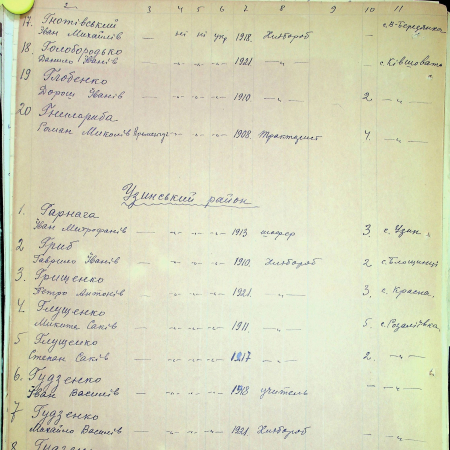 2 3 4 5 6 7 8 9 10 11
17. Гнотівський
Іван Михайлів — ні ні укр 1918. Хлібороб
18 Голобородько
Данило Іванів — -"- -"- -"- 1921 —"— с. Ківшовата
19 Глобенко
Дорош Іванів — -"- -"- -"- 1910 —"— 2. —"—
20
Роман Миколів — -"- -"- -"- 1908. Тракторист 4. —"—
Узинський район
1. Гарнага
Іван Митрофанів — -"- -"- -"- 1913 шофер 3. с. Узин
2 Гриб
Гаврило Іванів — -"- -"- -"- 1910. Хлібороб 2 с. Блощинці
3. Грищенко
Петро Антонів — -"- -"- -"- 1921. —"— 3. с. Красна.
4. Глущенко
Микита Саків — -"- -"- -"- 1911. —"— 5. с. Розаліївка
5 Глущенко
Степан Саків — -"- -"- -"- 1917 —"— 2. —"—
6. Гудзенко
Іван Василів — -"- -"- -"- 1918 учитель —"—
7 Гудзенко
Михайло Василів — -"- -"- -"- 1921. Хлібороб —"—
8